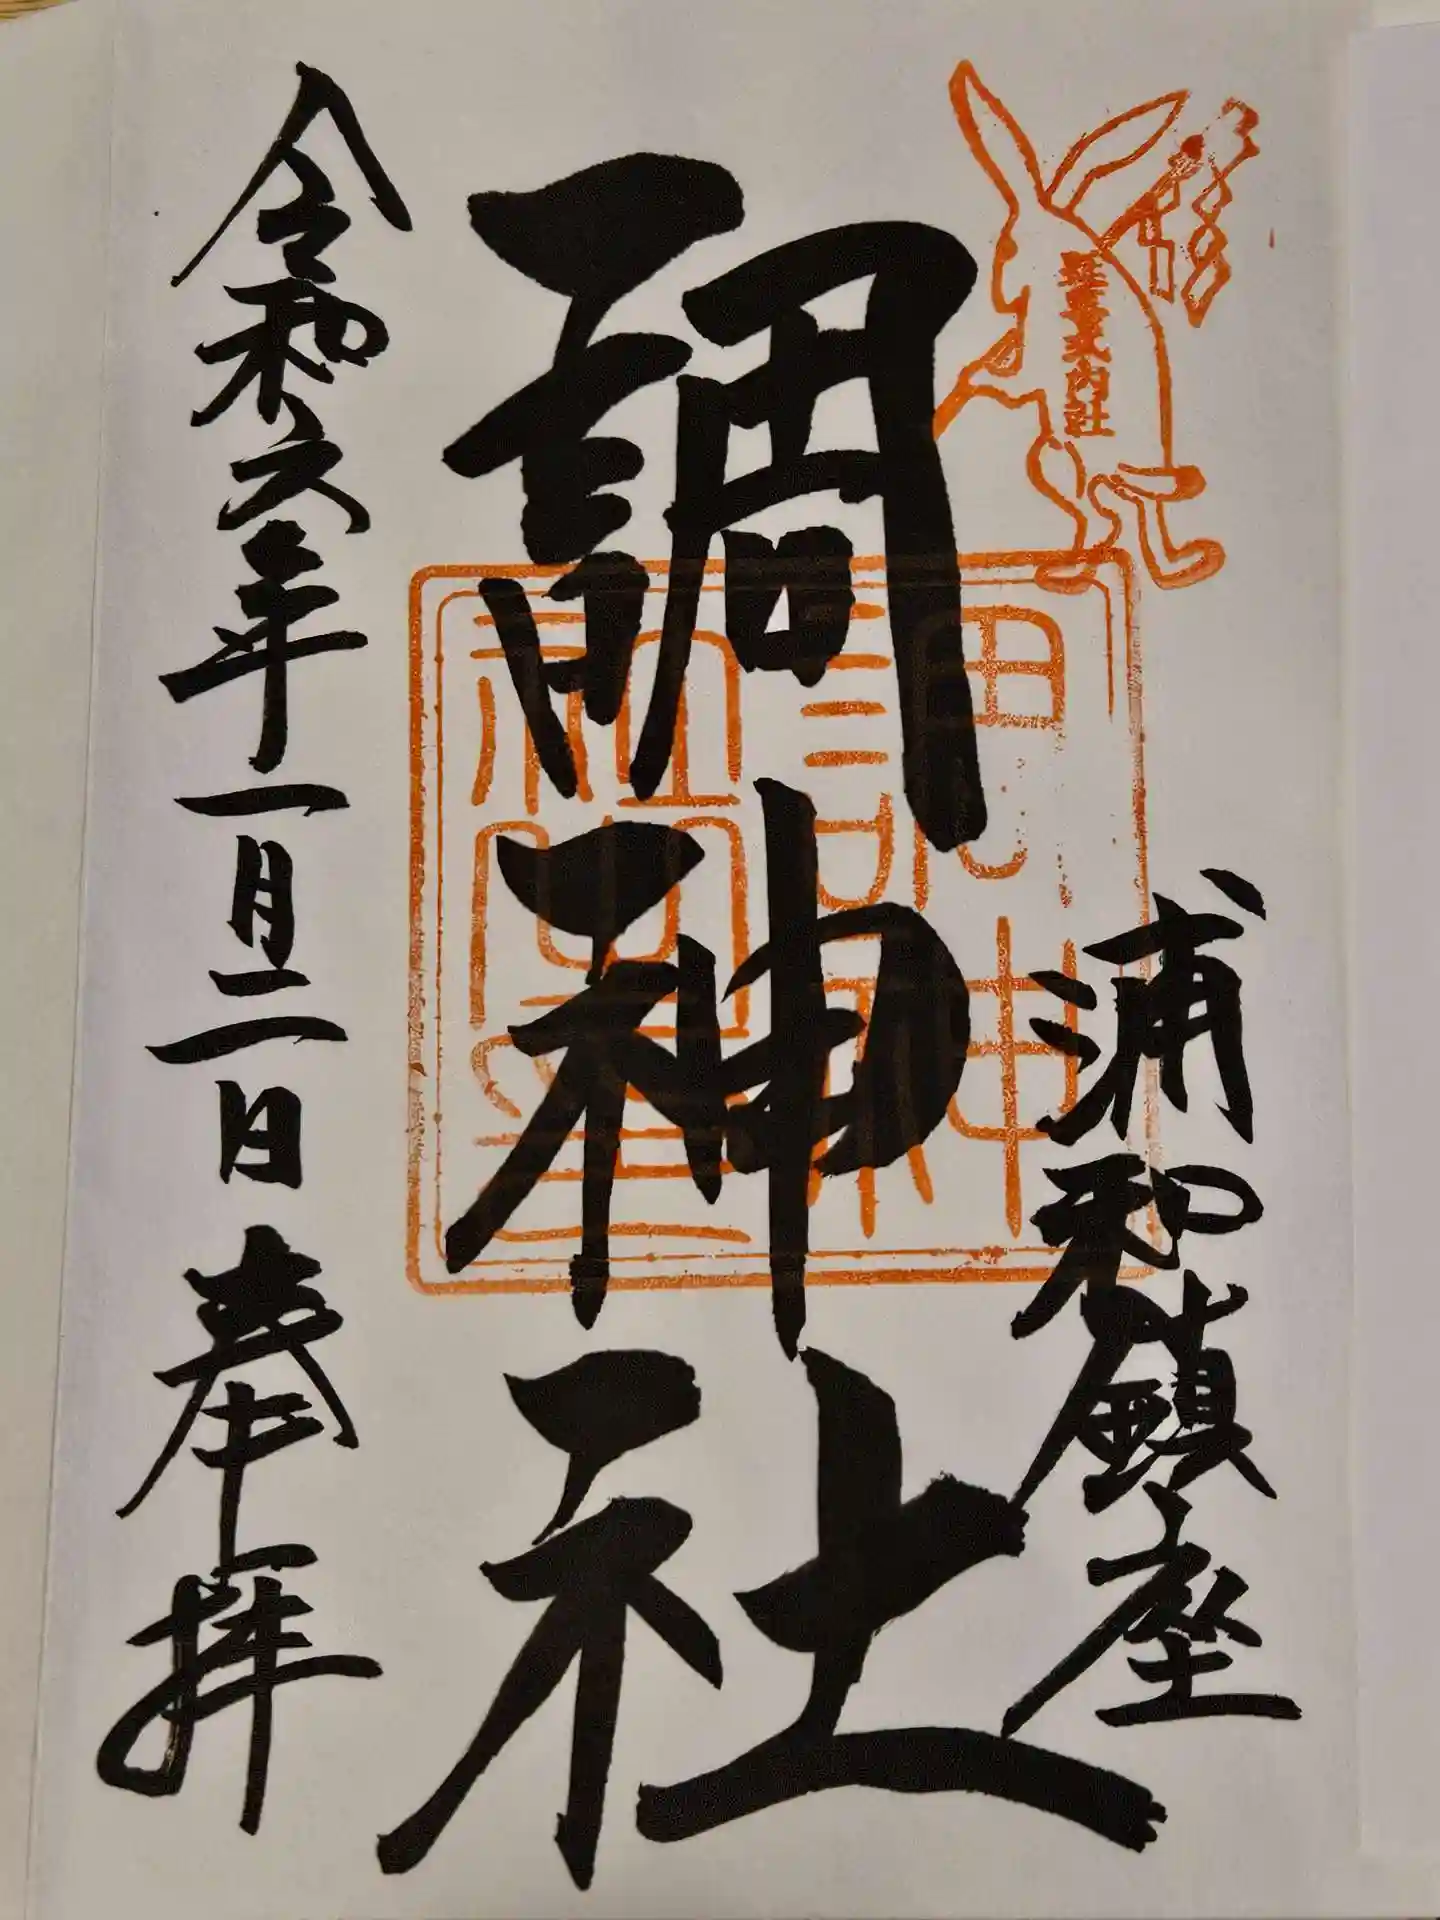 延喜式内社
浦和鎮座
調神社
令和六年一月二日奉拝